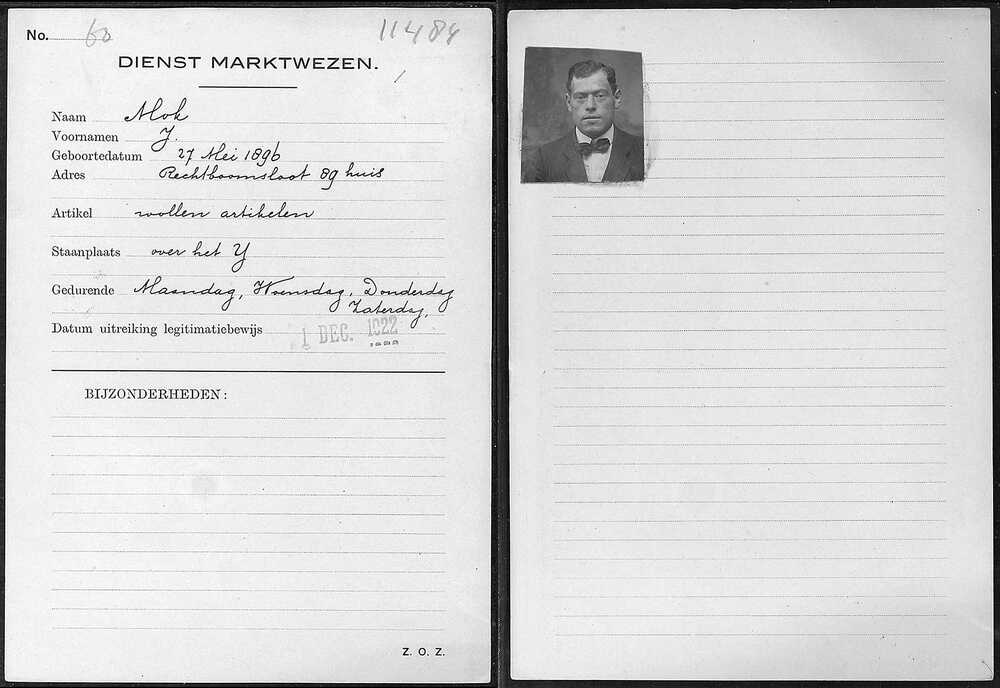 No. 60 11484
DIENST MARKTWEZEN.
Naam Mok
Voornamen J.
Geboortedatum 27 Mei 1896
Adres Rechtboomsloot 89 huis
Artikel wollen artikelen
Staanplaats over het Y
Gedurende Maandag, Woensdag, Donderdag
Zaterdag.
Datum uitreiking legitimatiebewijs 1 DEC. 1922
BIJZONDERHEDEN:
Z. O. Z.